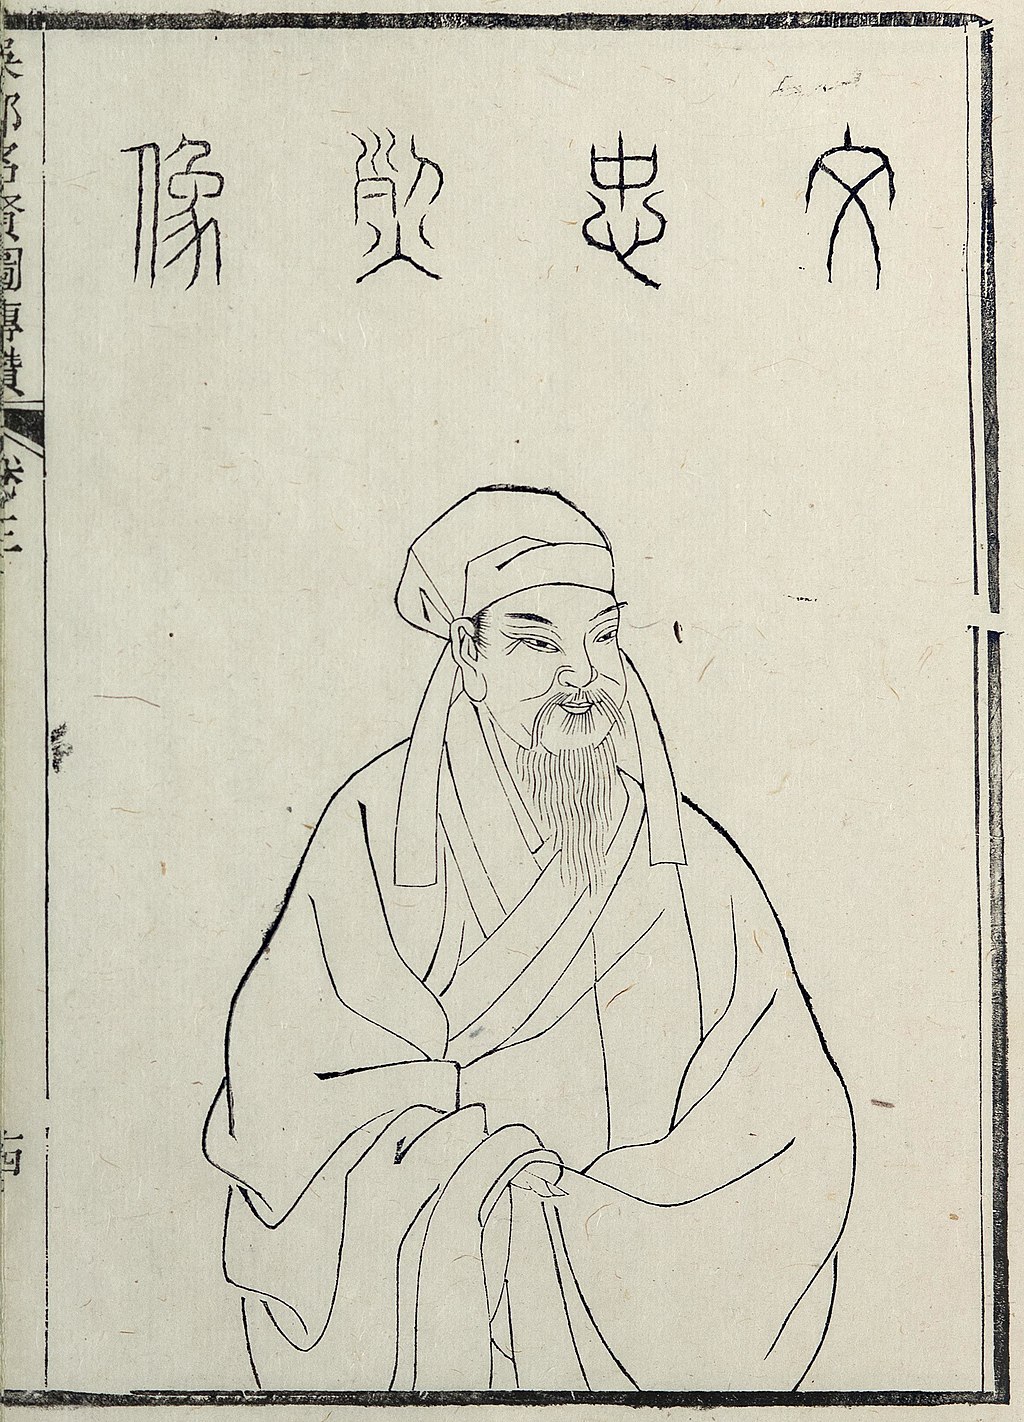 文忠烈像
吳郡名賢圖傳贊
卷三